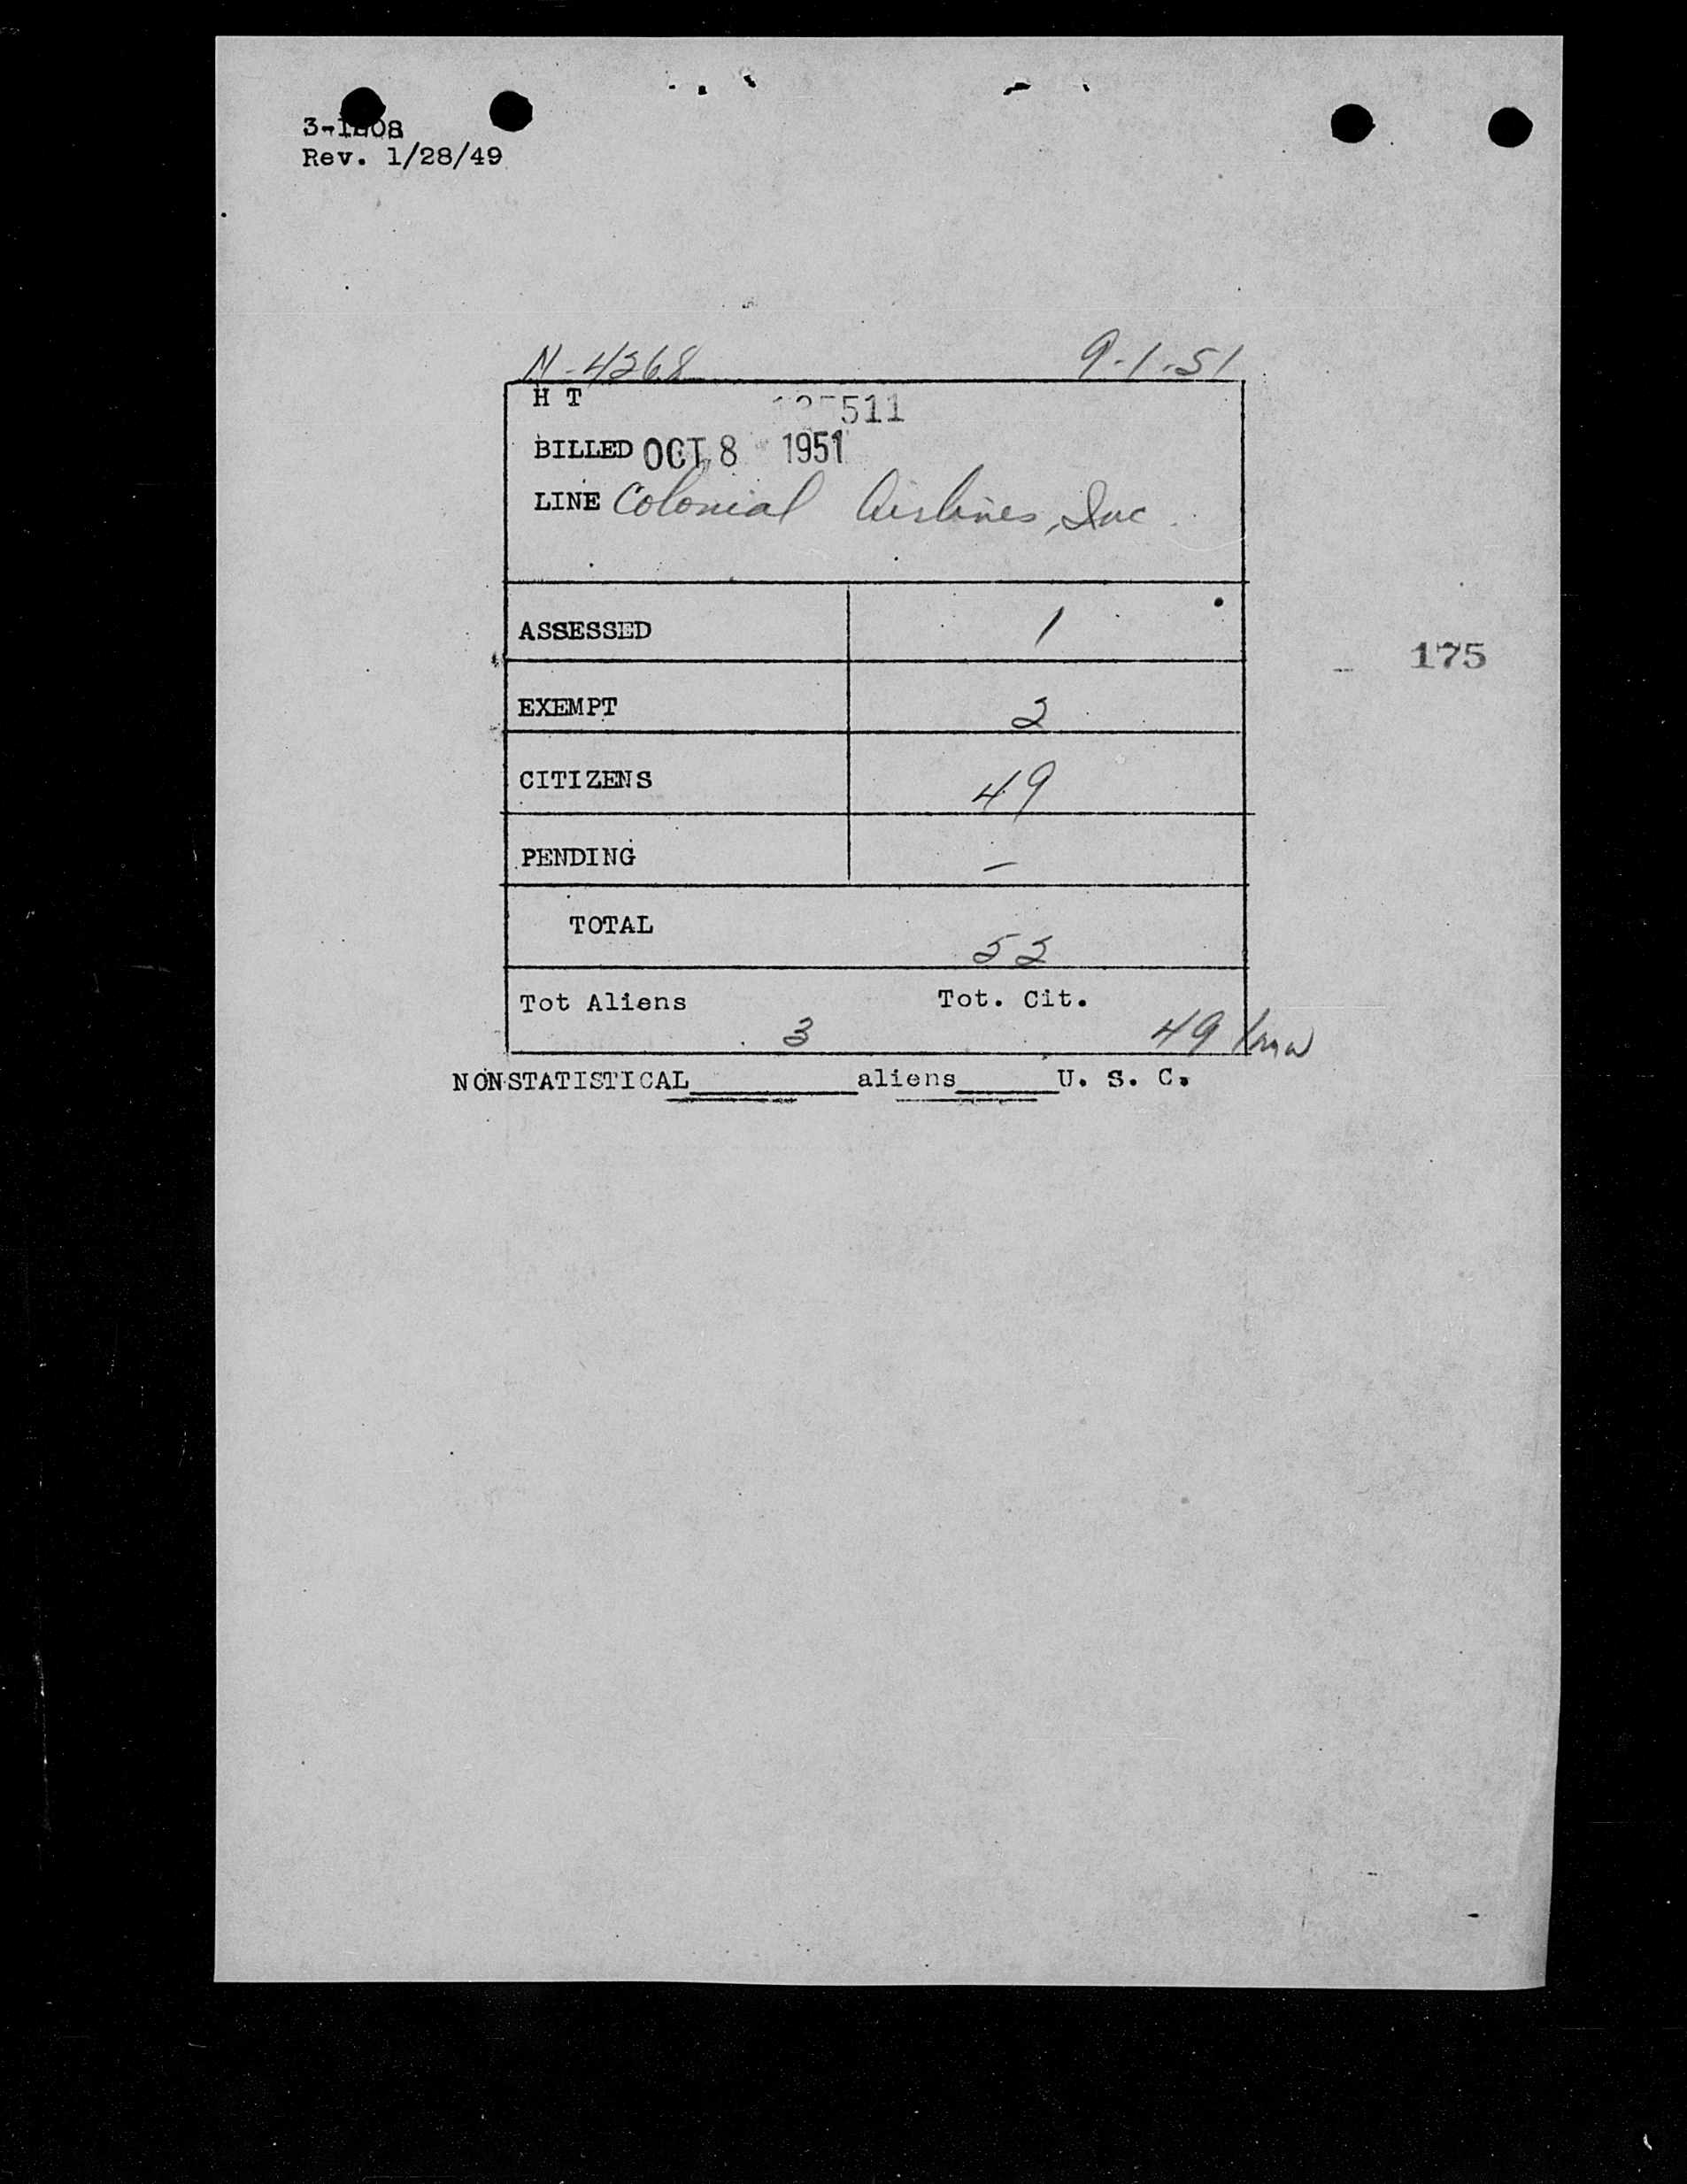 Rev. 1/28/49
N-4268 9-1-51
H T 511
BILLED OCT 8 1951
LINE Colonial Airlines, Inc.
ASSESSED 1
175
EXEMPT 2
CITIZENS 49
PENDING –
TOTAL 52
Tot Aliens 3 Tot. Cit. 49
NONSTATISTICAL________aliens_____U. S. C.